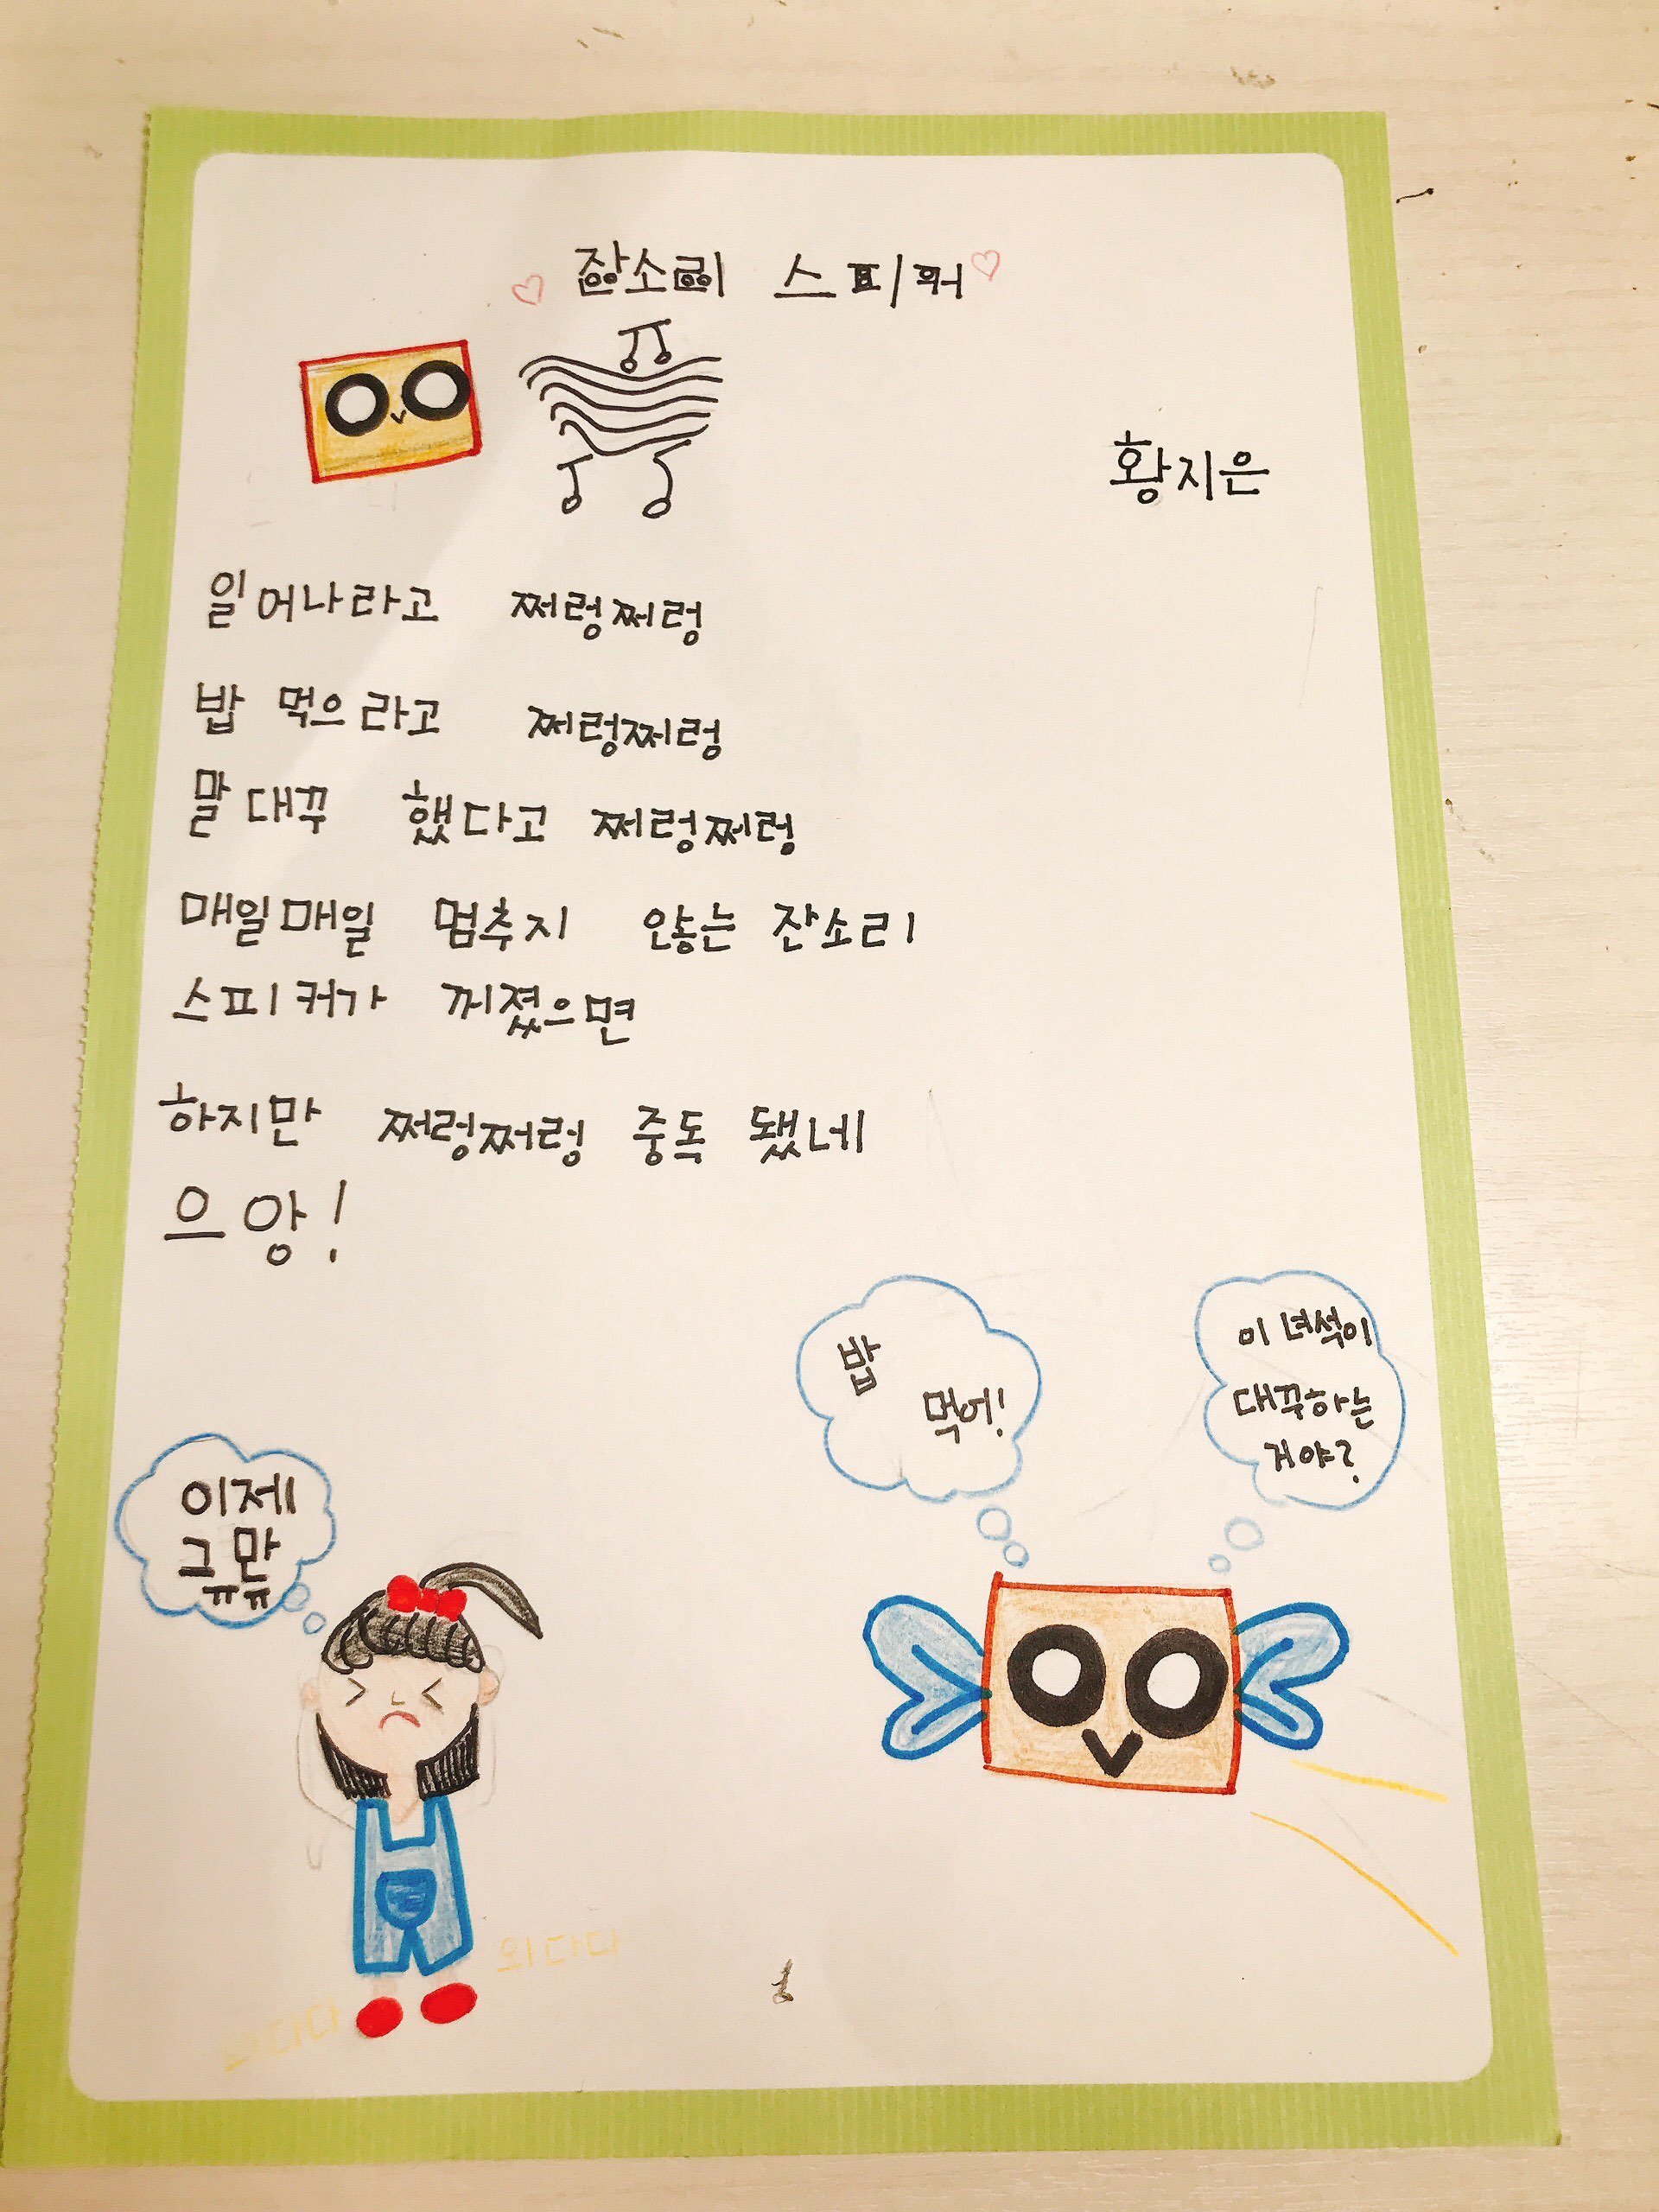 잔소리 스피커
황지은
일어나라고 쩌렁쩌렁
밥 먹으라고 쩌렁쩌렁
말대꾸 했다고 쩌렁쩌렁
매일매일 멈추지 않는 잔소리
스피커가 꺼졌으면
하지만 쩌렁쩌렁 중독 됐네
으앙!
밥
먹어!
이 녀석이
대꾸하는
거야?
이제
그만
ㅠㅠ
와다다
와다다
1